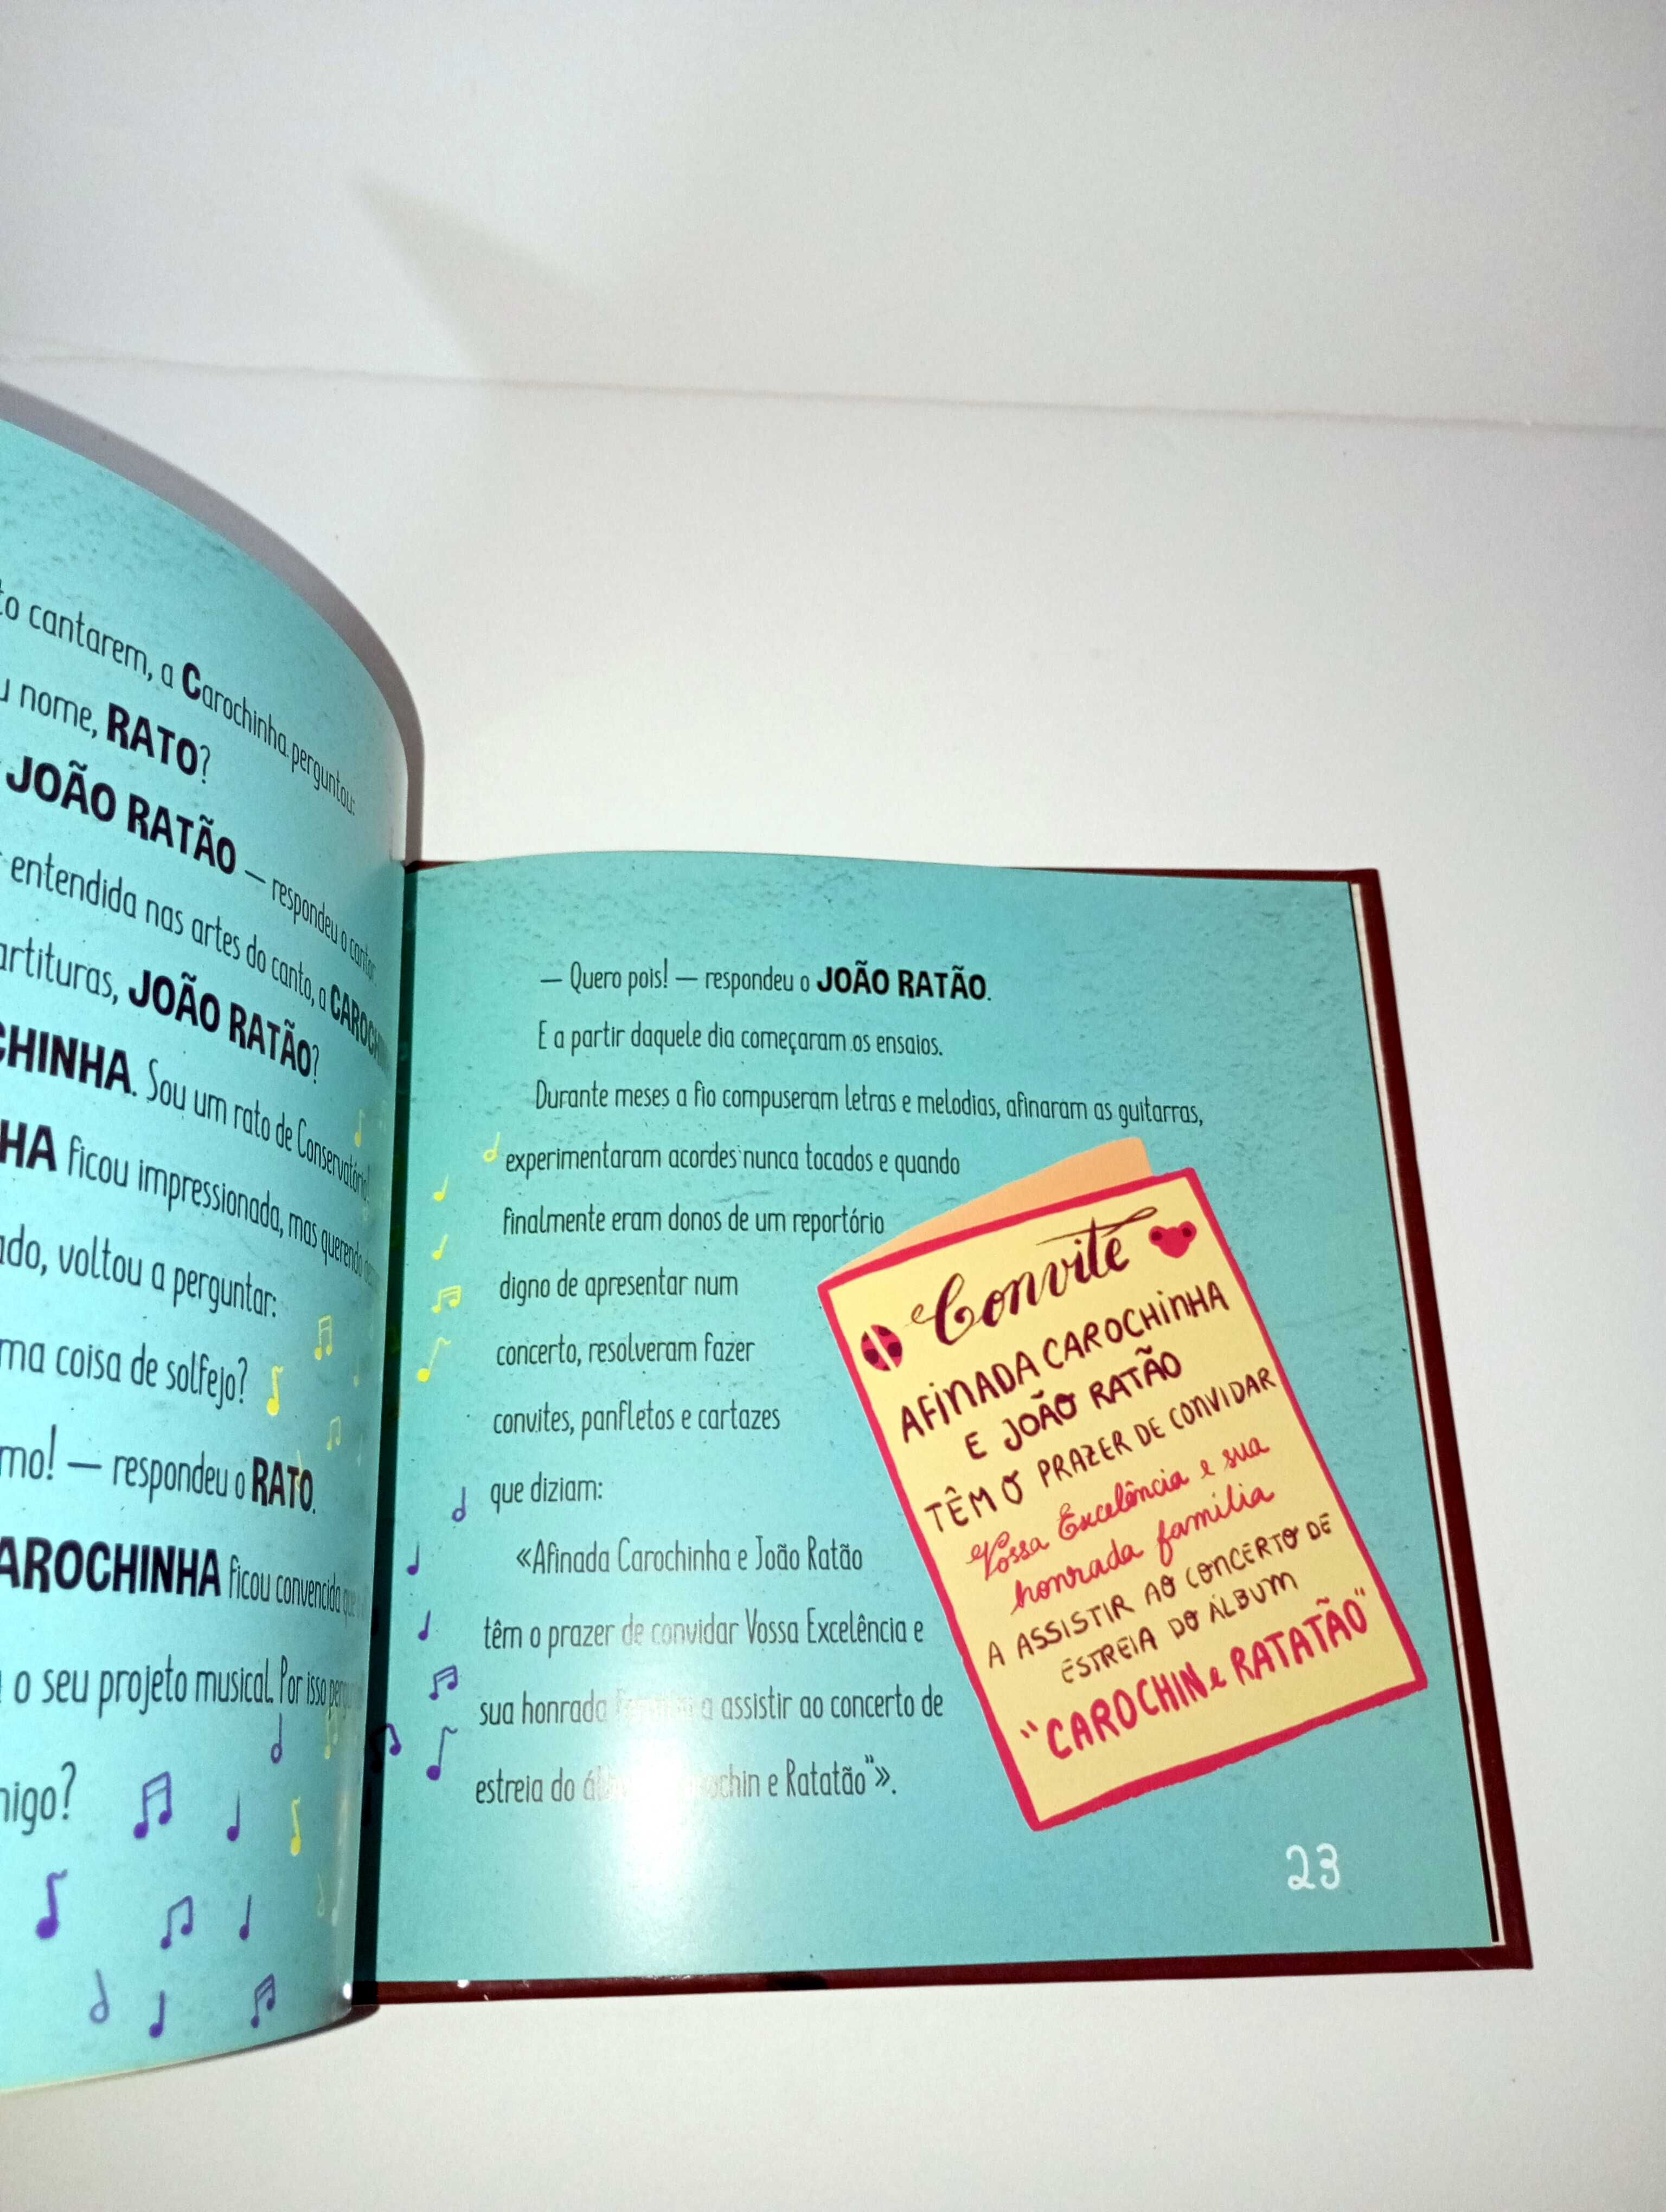 to cantarem, a Carochinha perguntou:
nome, RATO?
JOÃO RATÃO — respondeu o cantor.
entendida nas artes do canto, a
artituras, JOÃO RATÃO?
CHINHA. Sou um rato de Conservatório!
HA ficou impressionada, mas querendo
ado, voltou a perguntar:
ma coisa de solfejo?
mo! — respondeu o RATO.
AROCHINHA ficou convencida
o seu projeto musical. Por isso
migo?
— Quero pois! — respondeu o JOÃO RATÃO.
E a partir daquele dia começaram os ensaios.
Durante meses a fio compuseram letras e melodias, afinaram as guitarras,
experimentaram acordes nunca tocados e quando
finalmente eram donos de um reportório
digno de apresentar num
concerto, resolveram fazer
convites, panfletos e cartazes
que diziam:
«Afinada Carochinha e João Ratão
têm o prazer de convidar Vossa Excelência e
sua honrada família a assistir ao concerto de
estreia do e Ratatão"».
Convite
AFINADA CAROCHINHA
E JOÃO RATÃO
TÊM O PRAZER DE CONVIDAR
Vossa Excelência e sua
honrada família
A ASSISTIR AO CONCERTO DE
ESTREIA DO ÁLBUM
"CAROCHIN e RATATÃO"
23